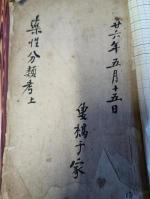 廿六年五月十五日
于家
藥性分類考上